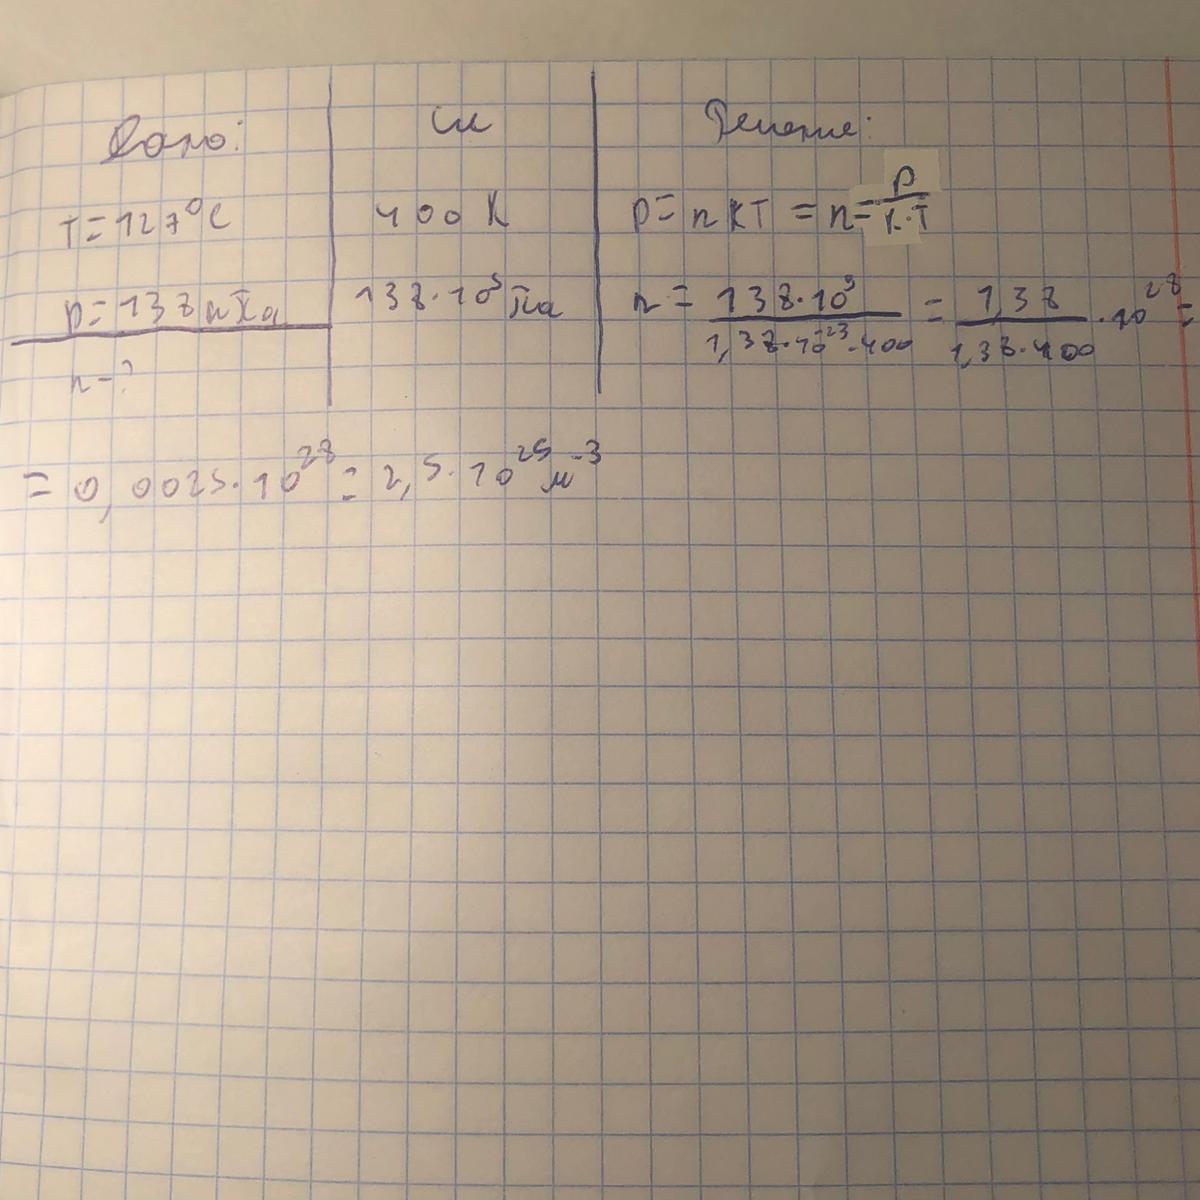 Дано:
T=127°C
p=138 кПа
n-?
СИ
400 К
138·10³ Па
Решение:
p= nKT = n= p/K·T
n = 138·10³/1,38·10²³·400 = 1,38/1,38·400 ·10²⁸ =
= 0,0025·10²⁸ = 2,5·10²⁵ м⁻³